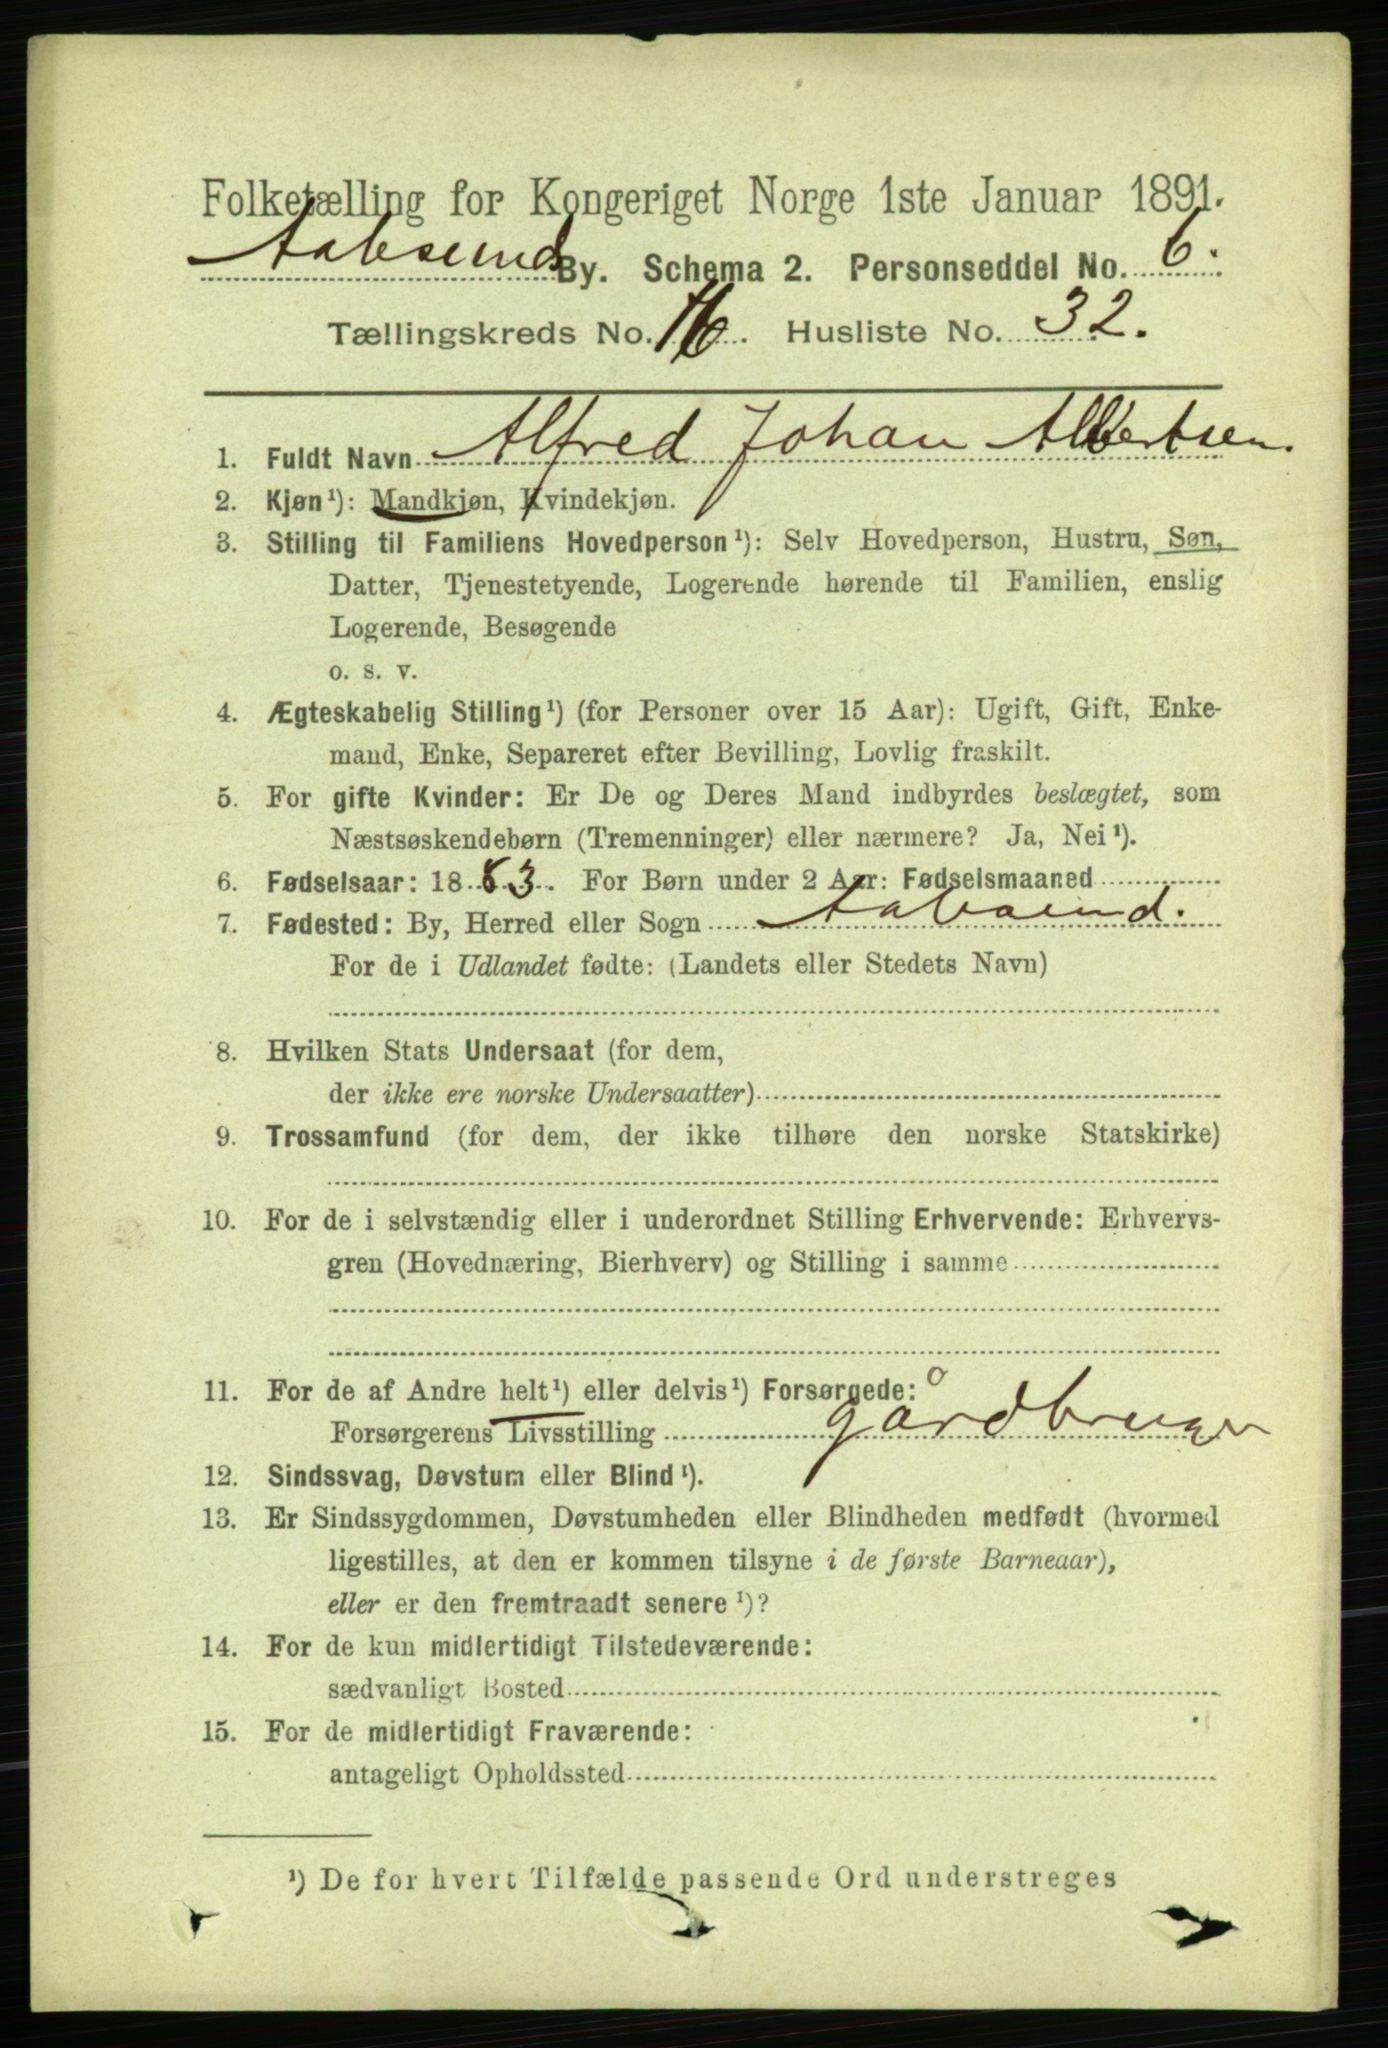 Folketælling for Kongeriget Norge 1ste Januar 1891.
Aalesunds By. Schema 2. Personseddel No. 6.
Tællingskreds No. 16. Husliste No. 32.
1. Fuldt Navn Alfred Johan Albertsen.
2. Kjøn¹): Mandkjøn, Kvindekjøn.
3. Stilling til Familiens Hovedperson¹): Selv Hovedperson, Hustru, Søn,
Datter, Tjenestetyende, Logerende hørende til Familien, enslig
Logerende, Besøgende
o. s. v.
4. Ægteskabelig Stilling¹) (for Personer over 15 Aar): Ugift, Gift, Enke-
mand, Enke, Separeret efter Bevilling, Lovlig fraskilt.
5. For gifte Kvinder: Er De og Deres Mand indbyrdes beslægtet, som
Næstsøskendebørn (Tremenninger) eller nærmere? Ja, Nei¹).
6. Fødselsaar: 1883. For Børn under 2 Aar: Fødselsmaaned
7. Fødested: By, Herred eller Sogn Aalesund.
For de i Udlandet fødte: (Landets eller Stedets Navn)
8. Hvilken Stats Undersaat (for dem,
der ikke ere norske Undersaatter)
9. Trossamfund (for dem, der ikke tilhøre den norske Statskirke)
10. For de i selvstændig eller i underordnet Stilling Erhvervende: Erhvervs-
gren (Hovednæring, Bierhverv) og Stilling i samme
11. For de af Andre helt¹) eller delvis¹) Forsørgede:
Forsørgerens Livsstilling gårdbruger
12. Sindssvag, Døvstum eller Blind¹).
13. Er Sindssygdommen, Døvstumheden eller Blindheden medfødt (hvormed
ligestilles, at den er kommen tilsyne i de første Barneaar),
eller er den fremtraadt senere¹)?
14. For de kun midlertidigt Tilstedeværende:
sædvanligt Bosted
15. For de midlertidigt Fraværende:
antageligt Opholdssted
¹) De for hvert Tilfælde passende Ord understreges